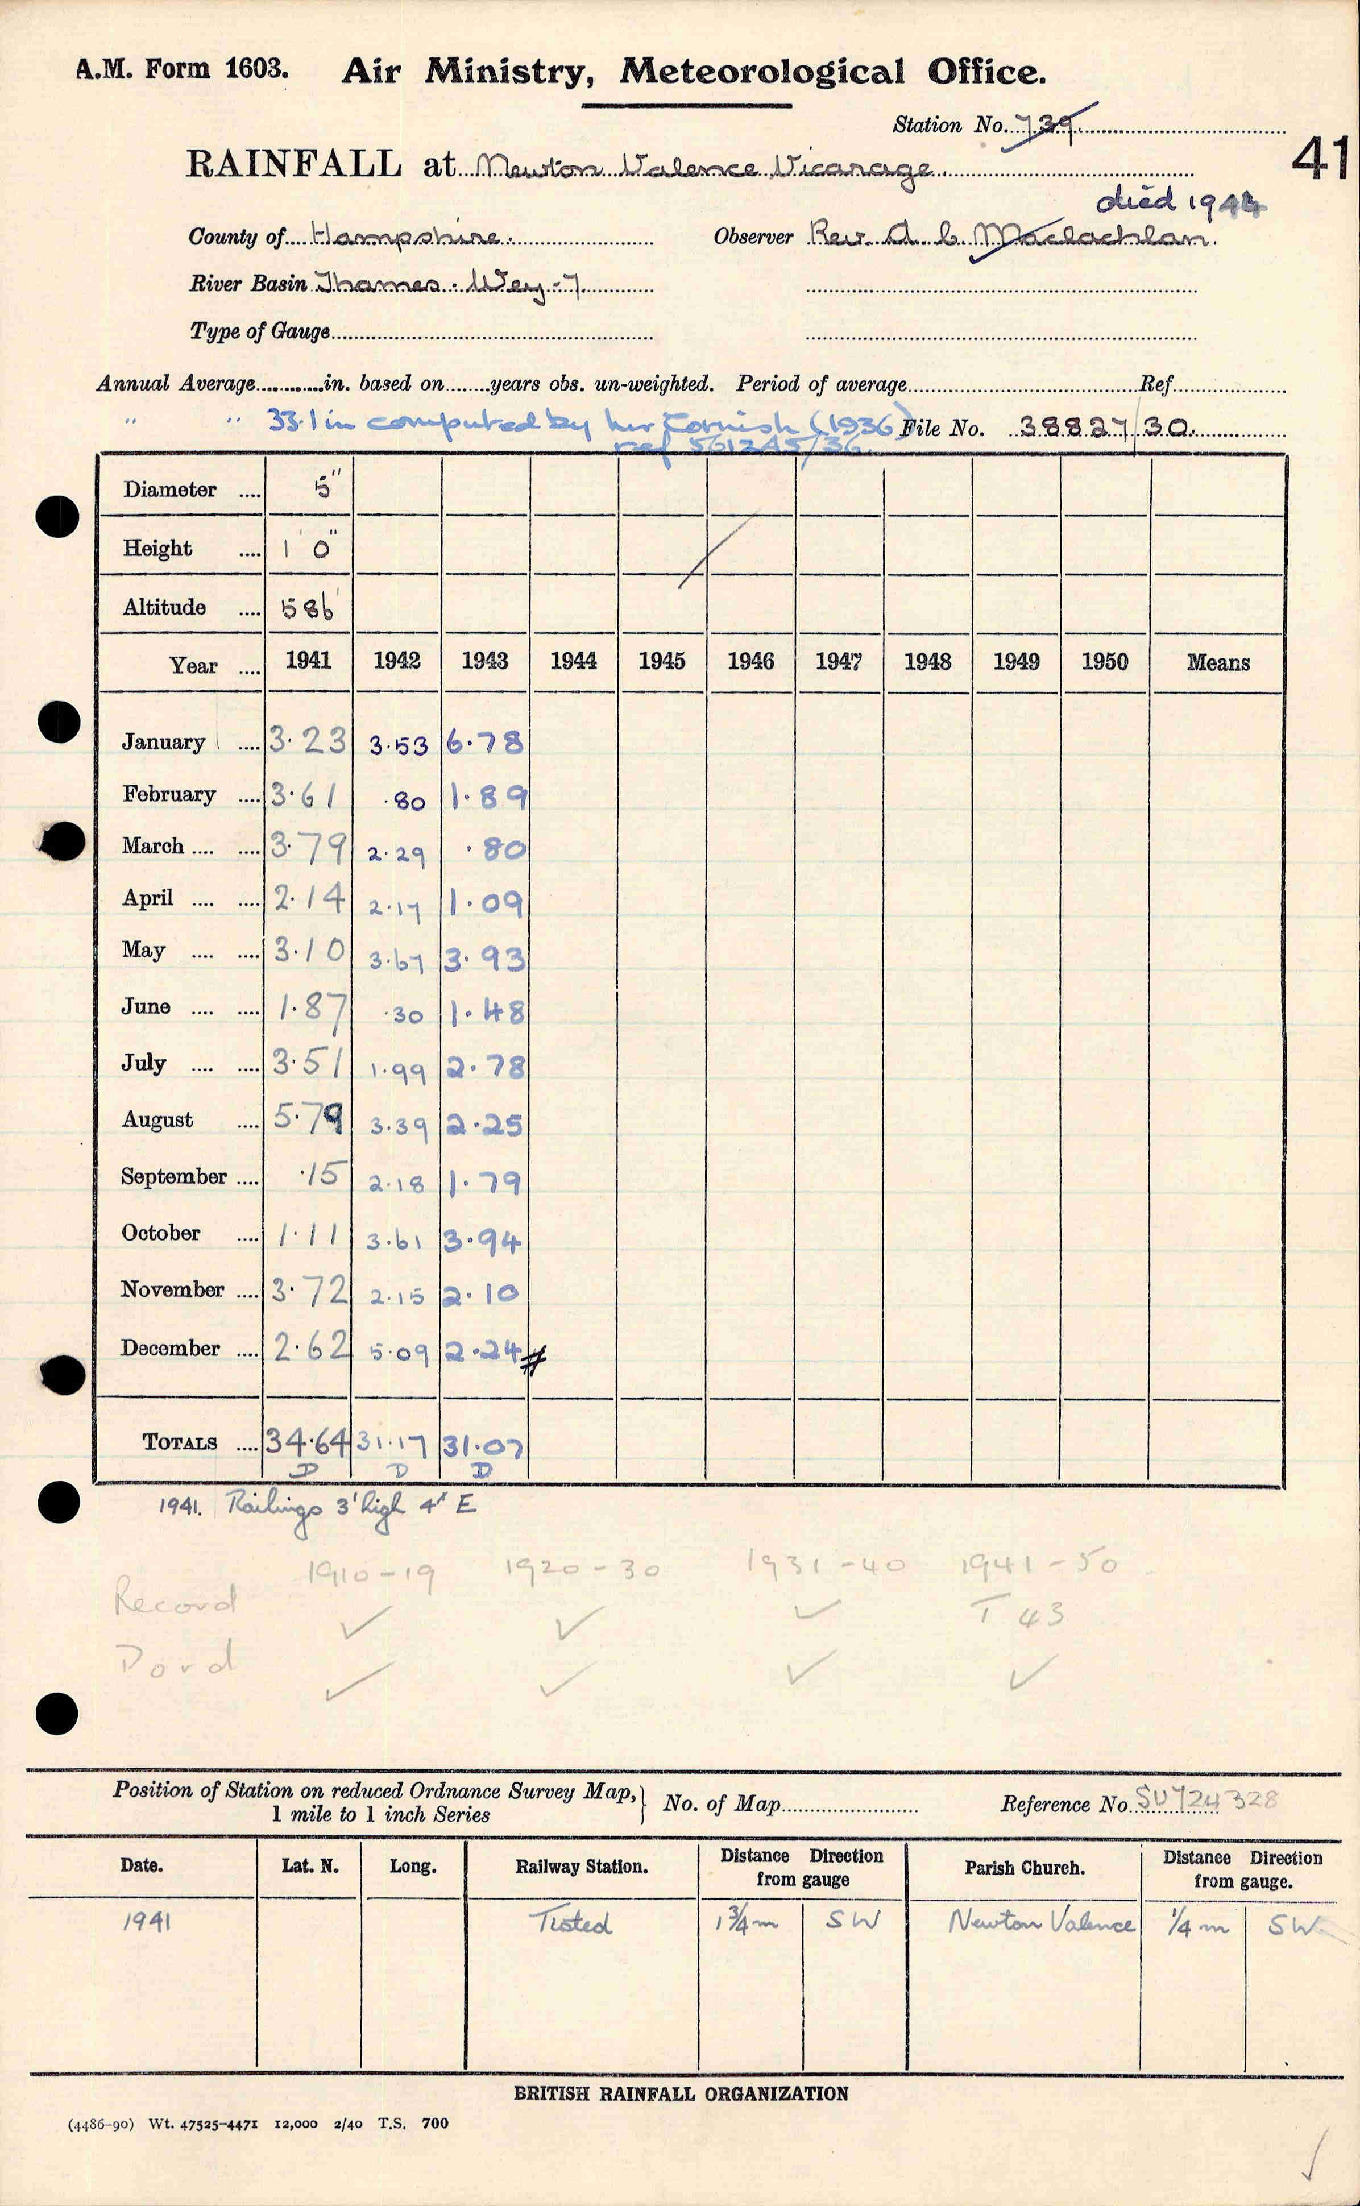 A.M. Form 1603. Air Ministry, Meteorological Office.
Station No. 739
41
RAINFALL at Newton Valence Vicarage.
died 1944
County of Hampshire. Observer Rev. A. C. Maclachlan.
River Basin Thames. Wey-7
Type of Gauge
Annual Average in. based on years obs. un-weighted. Period of average Ref
" " 33.1 in computed by Mr Cornish (1936) File No. 38827/30.
ref 561245/36
Diameter .... 5"
Height .... 1' 0"
Altitude .... 586'
Year .... 1941 1942 1943 1944 1945 1946 1947 1948 1949 1950 Means
January .... 3.23 3.53 6.78
February .... 3.61 .80 1.89
March .... .... 3.79 2.29 .80
April .... .... 2.14 2.17 1.09
May .... .... 3.10 3.67 3.93
June .... .... 1.87 .30 1.48
July .... .... 3.51 1.99 2.78
August .... 5.79 3.39 2.25
September .... .15 2.18 1.79
October .... 1.11 3.61 3.94
November .... 3.72 2.15 2.10
December .... 2.62 5.09 2.24 #
TOTALS .... 34.64 31.17 31.07
D D D
1941. Railings 3' high 4' E
1910-19 1920-30 1931-40 1941-50
Record ✓ ✓ ✓ T 43
Dord ✓ ✓ ✓ ✓
Position of Station on reduced Ordnance Survey Map, } No. of Map Reference No. SU724328
1 mile to 1 inch Series
Date. Lat. N. Long. Railway Station. Distance from gauge Direction Parish Church. Distance from gauge. Direction
1941 Tisted 1¾ m SW Newton Valence ¼ m SW
BRITISH RAINFALL ORGANIZATION
(4486-90) Wt. 47525-4471 12,000 2/40 T.S. 700